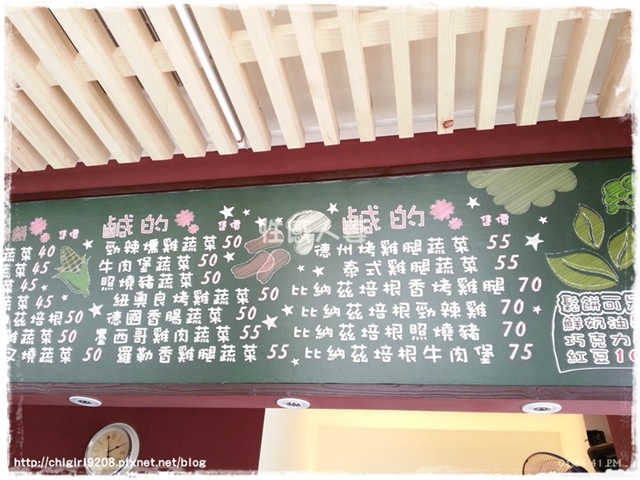 鹹的 售價
鹹的 售價
蔬菜 40
蔬菜 45
蔬菜 45
蔬菜 45
茲培根 50
雞蔬菜 50
叉燒蔬菜 50
勁辣燻雞蔬菜 50
牛肉堡蔬菜 50
照燒豬蔬菜 50
紐奧良烤雞蔬菜 50
德國香腸蔬菜 50
墨西哥雞肉蔬菜 55
羅勒香雞腿蔬菜 55
德州烤雞腿蔬菜 55
泰式雞腿蔬菜 55
比納茲培根香烤雞腿 70
比納茲培根勁辣雞 70
比納茲培根照燒豬 70
比納茲培根牛肉堡 75
鬆餅可
鮮奶油
巧克力
紅豆10
http://chigiri9208.pixnet.net/blog